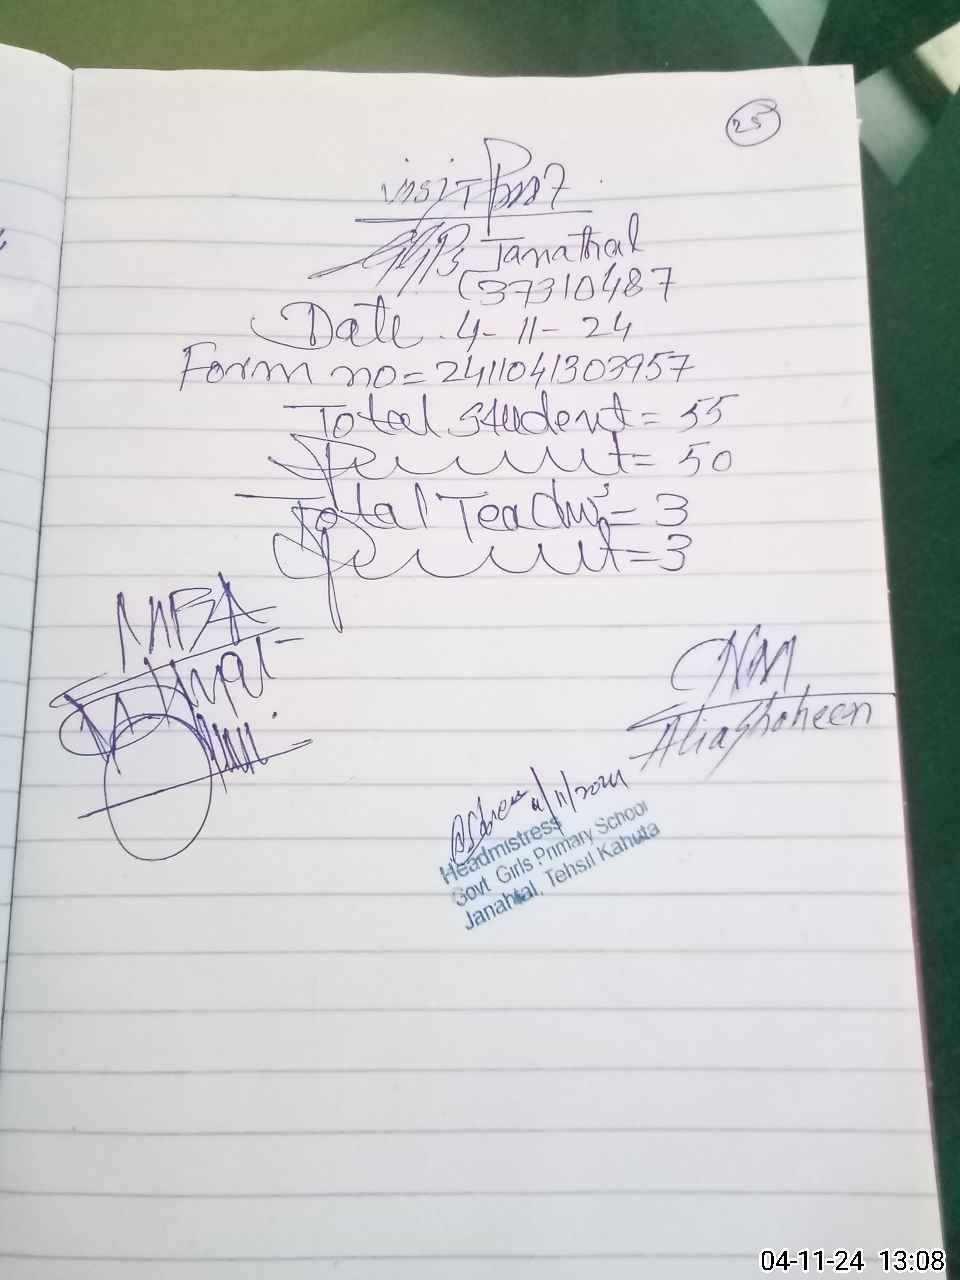 25
Visit
GGPS Janathal
(37310487
Date. 4-11-24
Form no=2411041303957
Total student=55
Present=50
Total Teachers=3
Present=3
MEA
CNM
Alia Shaheen
4/11/2024
Headmistress
Govt Girls Primary School
Janahtal, Tehsil Kahuta
04-11-24 13:08